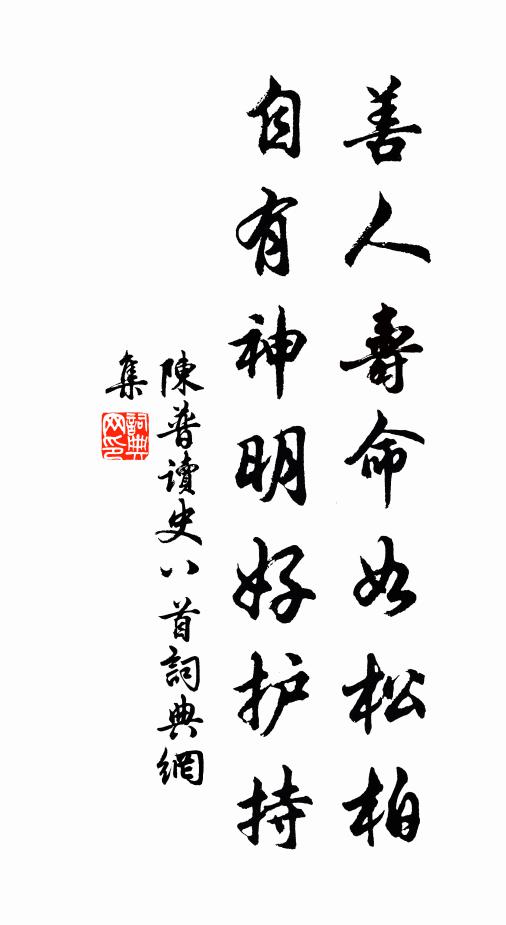 善人壽命如松柏
自有神明好护持
陳普讀史八首詞典網
集
詞典网印